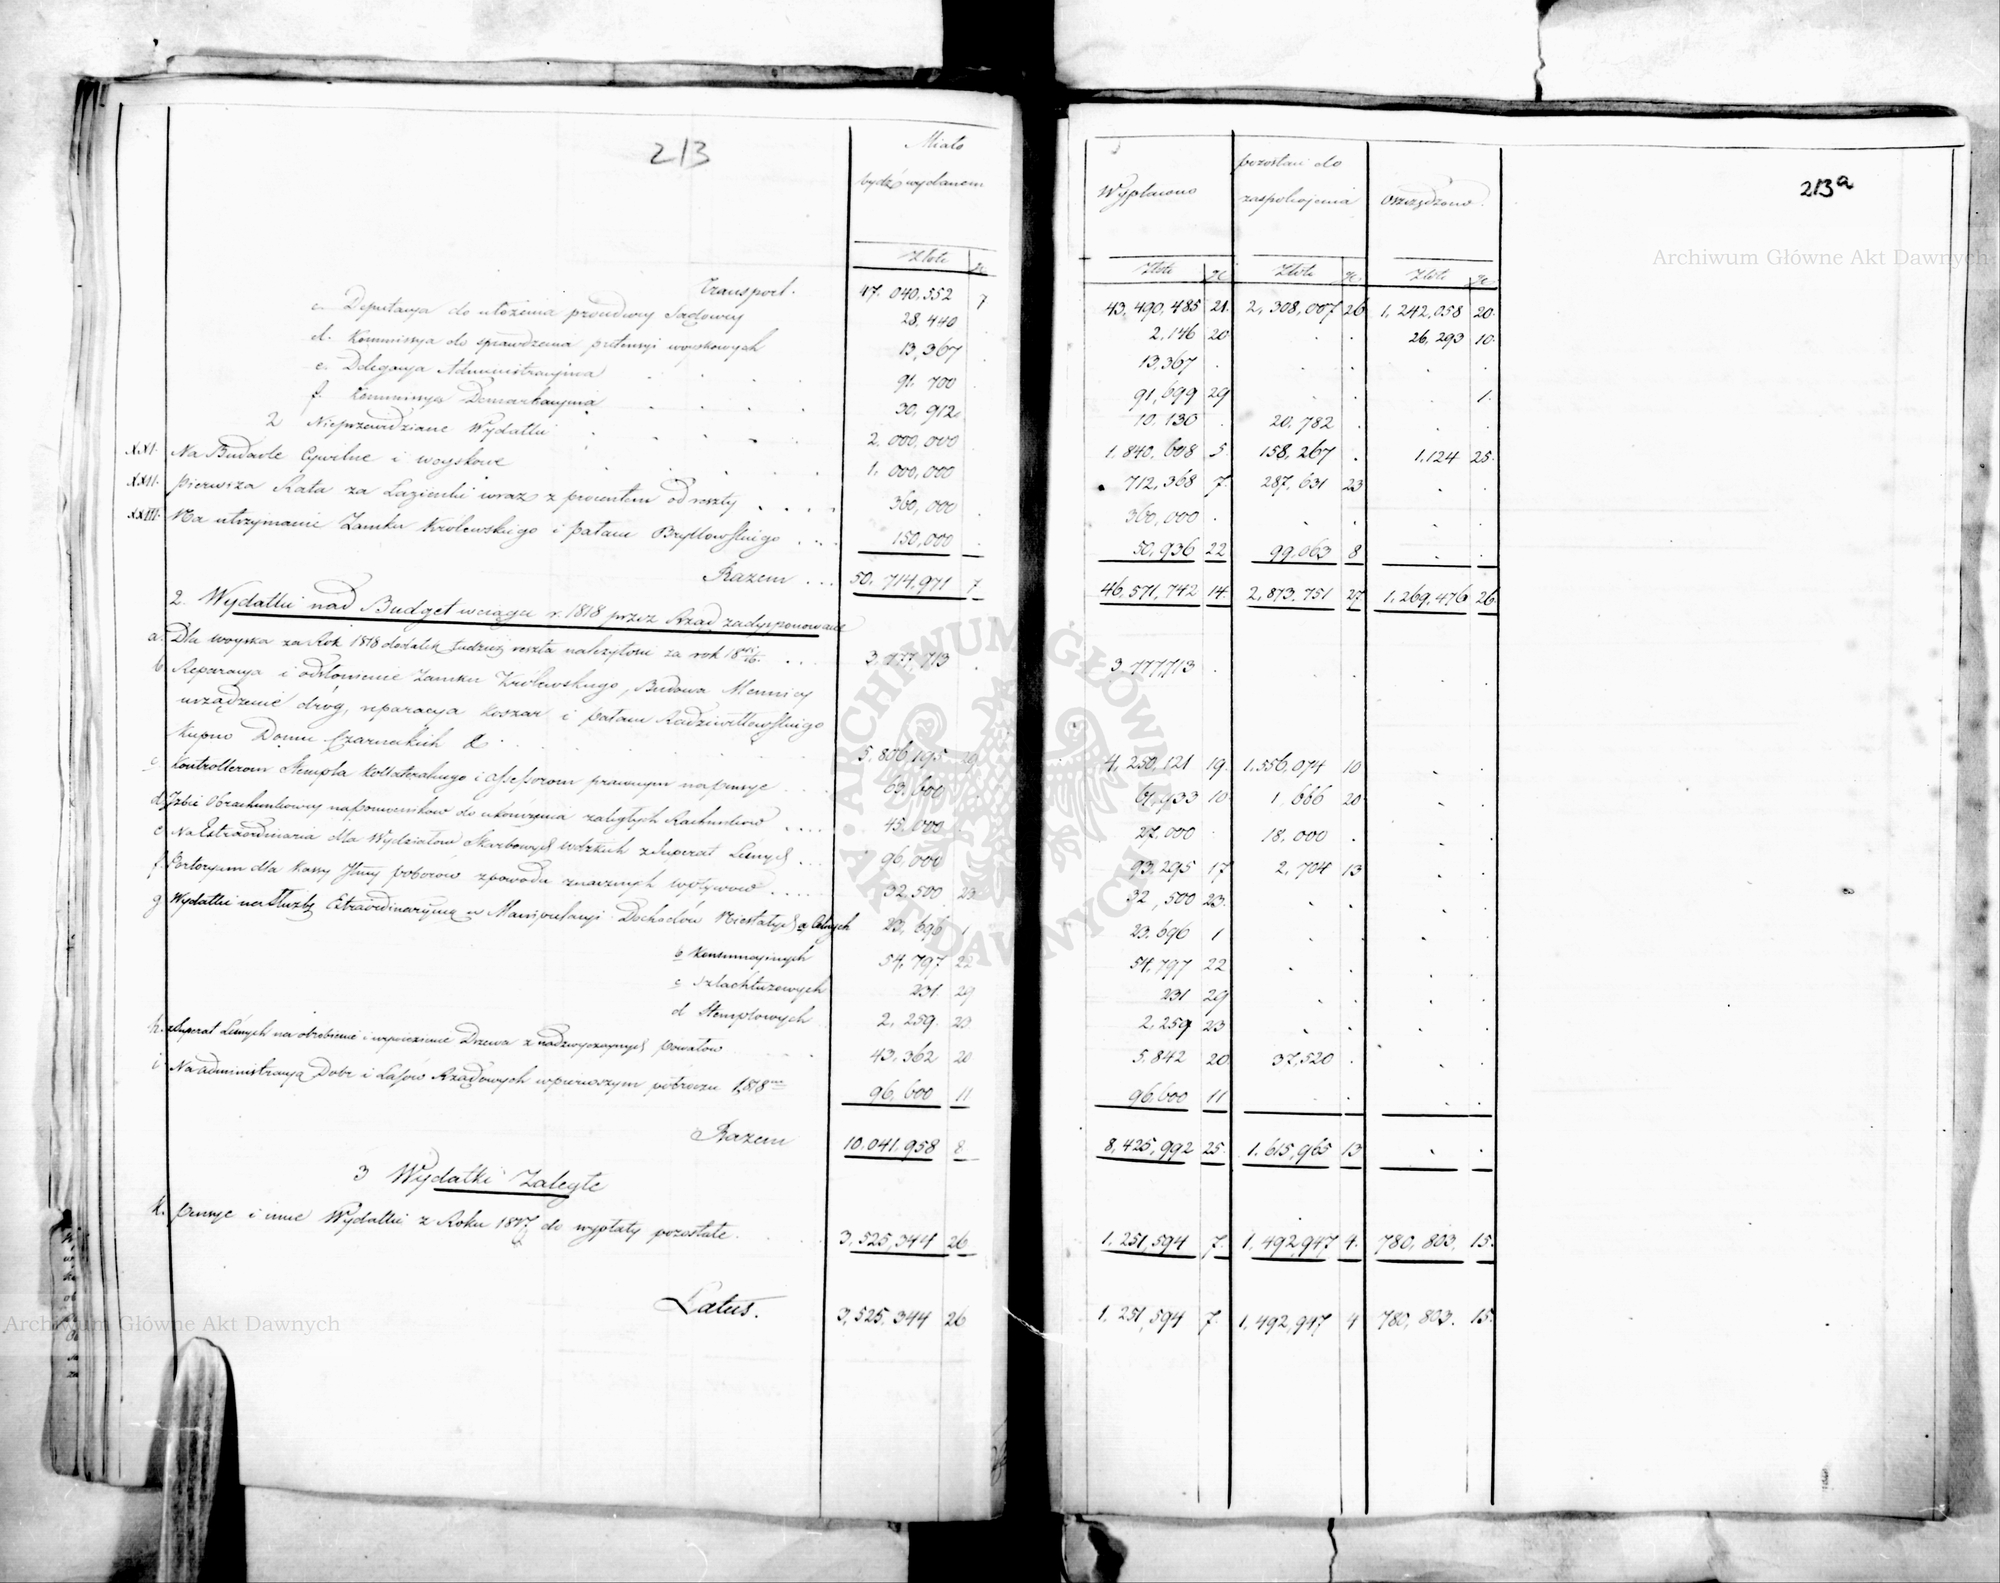 213
Miało
bydź wydanem
Złote gr
Transport. 47. 040,552 7
c. Deputacya do ułożenia procedury Sądowey 28,440
d. Kommissya do sprawdzenia pretensyi woyskowych 13,367
e. Delegacya Administracyina 91,700
f. Kommissya Demarkacyina 30,912
2 Nieprzewidziane Wydatki 2.000,000
XXI. Na Budowle Cywilne i woyskowe 1.000,000
XXII. Pierwsza Rata za Łazienki wraz z procentem od reszty 360,000
XXIII. Na utrzymanie Zamku Królewskiego i pałacu Bryllowskiego 150,000
Razem 50. 714,971 7
2. Wydatki nad Budget w ciągu r. 1818 przez Rząd zadysponowane
a. Dla woyska za Rok 1818 dodatek tudzież reszta należytości za rok 18 3.777,713
b Reparacya i odnowienie Zamku Królewskiego, Budowa Mennicy
urządzenie dróg, reparacya koszar i pałacu Radziwiłłowskiego
Kupno Domu Czarneckich & 5,806,195 29
c Kontrollerom Stempla Kollateralnego i Assessorom prawnym na pensye 63,600
d Izbie Obrachunkowey na pomocników do ukończenia zaległych Rachunków 45,000
e Na Extraordinaria dla Wydziałów Skarbowych wdzkich z Superat Leśnych 96,000
f Portoryum dla Kassy Jlney poborów z powodu znacznych wpływów 32,500 23
g Wydatki na służbę Extraordinaryiną w Manipulacyi Dochodów Niestałych a Celnych 23,696 1
b Konsumcyinych 54,797 22
c Szlachtuzowych 231 29
d Stemplowych 2,259 23
h. z Superat Leśnych na obrobienie i wywiezienie Drzewa z nadzwyczaynych powałów 43,362 20
i Na administracyą Dóbr i Lasów Rządowych w pierwszym półroczu 1818 96,600 11
Razem 10.041,958 8
3 Wydatki Zaległe
k. pensye i inne Wydatki z Roku 1817 do wypłaty pozostałe 3,525,344 26
Latus. 3,525,344 26
213a
Wypłacono pozostaie do zaspokojenia oszczędzono
Złote gr Złote gr Złote gr
43,490,485 21 2,308,007 26 1,242,058 20
2,146 20 . . 26,293 10
13,367 . . . . .
91,699 29 . . . 1.
10,130 . 20,782 . . .
1.840,608 5 158,267 . 1,124 25
712,368 7 287,631 23 . .
360,000 . . . . .
50,936 22 99,063 8 . .
46,571,742 14 2,873,751 27 1,269,476 26
3.777,713 . . . . .
4,250,121 19 1.556,074 10 . .
61,933 10 1,666 20 . .
27,000 . 18,000 . . .
93,295 17 2,704 13 . .
32,500 23 . . . .
23,696 1 . . . .
54,797 22 . . . .
231 29 . . . .
2,259 23 . . . .
5.842 20 37,520 . . .
96,600 11 . . . .
8,425,992 25 1.615,965 13 . .
1.251,594 7 1,492,947 4. 780,803 15
1,251,594 7 1,492,947 4 780,803. 15
Archiwum Główne Akt Dawnych
ARCHIWUM GŁÓWNE AKT DAWNYCH
Archiwum Główne Akt Dawnych